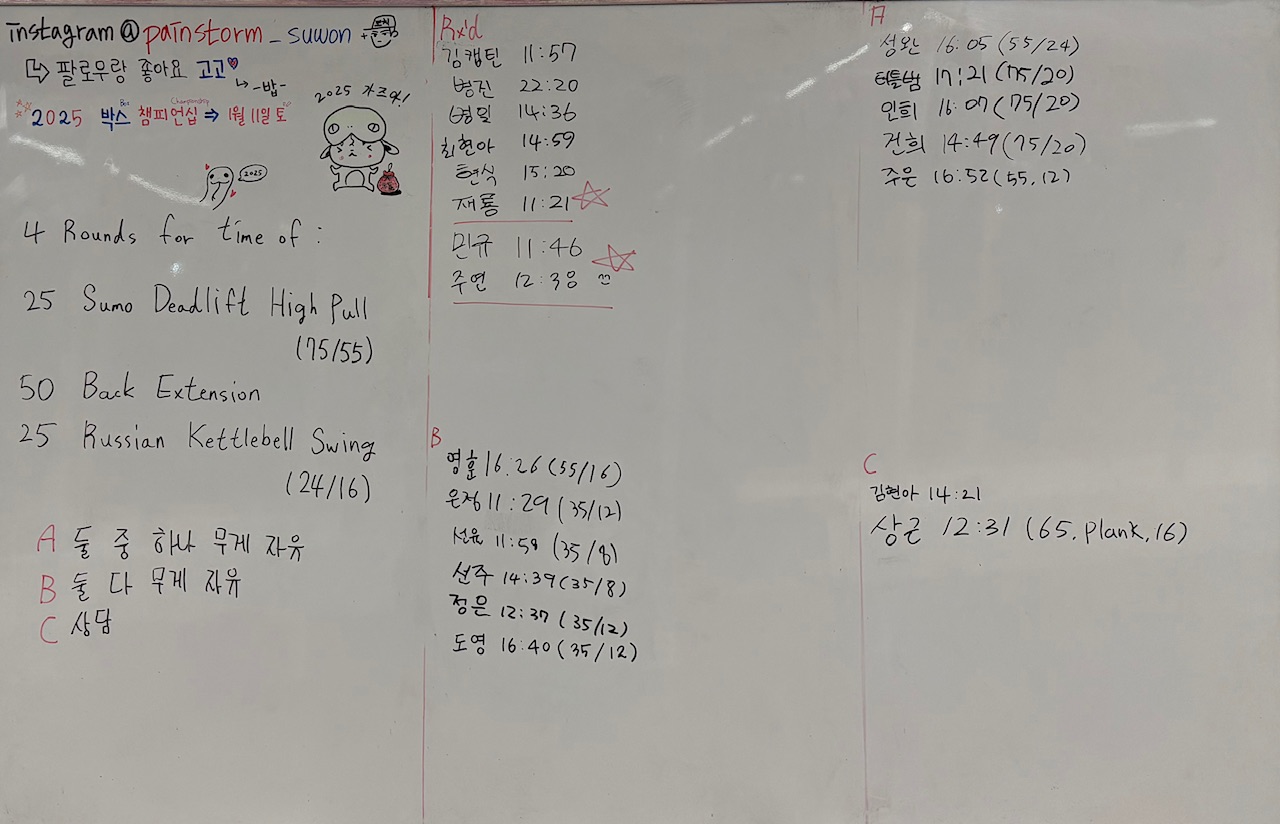 instagram @ painstorm_suwon
팔로우랑 좋아요 고고
-밥-
2025 박스 챔피언십 ⇒ 1월 11일 토
Box Championship
2025 가즈아!
2025
4 Rounds for time of :
25 Sumo Deadlift High Pull
(75/55)
50 Back Extension
25 Russian Kettlebell Swing
(24/16)
A 둘 중 하나 무게 자유
B 둘 다 무게 자유
C 상담
Rx'd
김캡틴 11:57
병진 22:20
병일 14:36
최현아 14:59
현식 15:20
재룡 11:21
민규 11:46
주연 12:38
B
영훈 16:26 (55/16)
은정 11:29 (35/12)
선율 11:58 (35/8)
선주 14:39 (35/8)
정은 12:37 (35/12)
도영 16:40 (35/12)
A
성완 16:05 (55/24)
터틀범 17:21 (75/20)
인희 16:07 (75/20)
건희 14:49 (75/20)
주은 16:52 (55.12)
C
김현아 14:21
상근 12:31 (65. plank. 16)